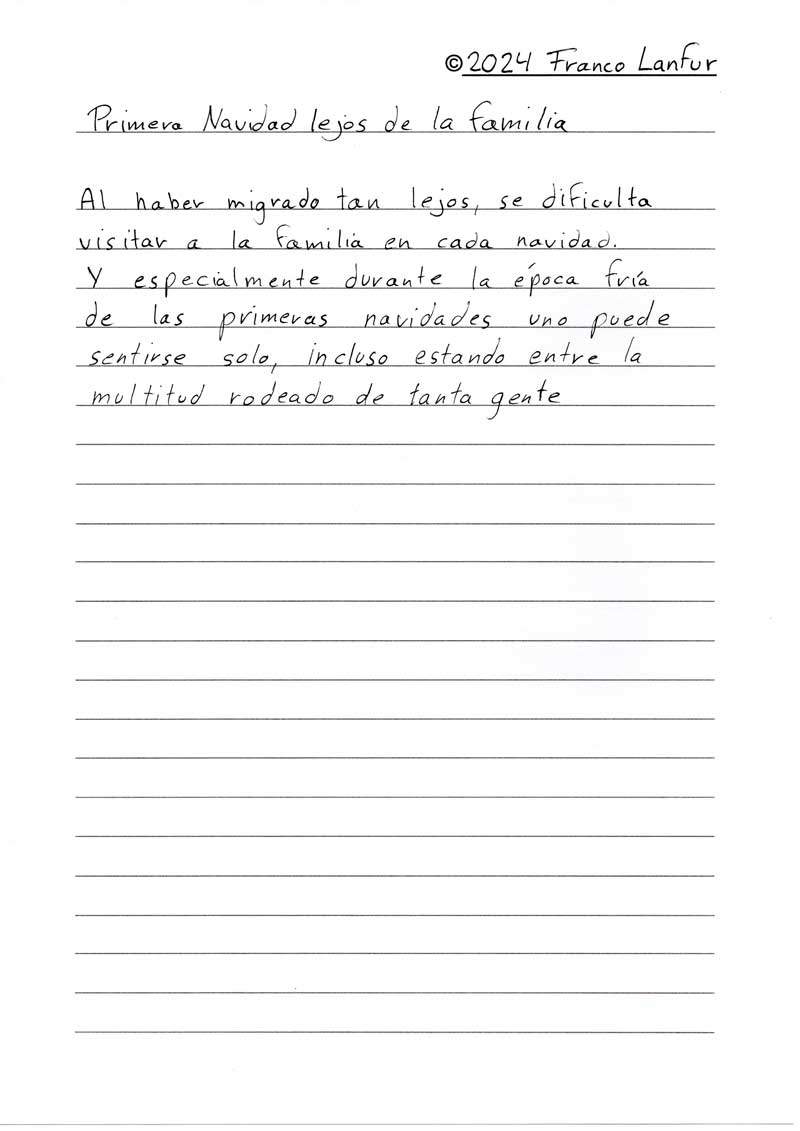 ©2024 Franco Lanfur
Primera Navidad lejos de la familia
Al haber migrado tan lejos, se dificulta
visitar a la familia en cada navidad.
Y especialmente durante la época fría
de las primeras navidades uno puede
sentirse solo, incluso estando entre la
multitud rodeado de tanta gente